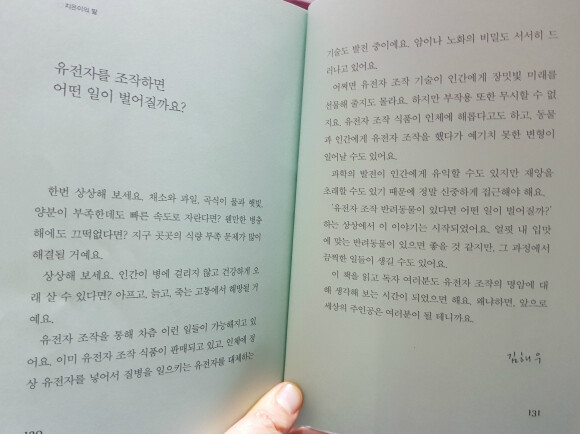 지은이의 말
유전자를 조작하면
어떤 일이 벌어질까요?
한번 상상해 보세요. 채소와 과일, 곡식이 물과 햇빛,
양분이 부족한데도 빠른 속도로 자란다면? 웬만한 병충
해에도 끄떡없다면? 지구 곳곳의 식량 부족 문제가 많이
해결될 거예요.
상상해 보세요. 인간이 병에 걸리지 않고 건강하게 오
래 살 수 있다면? 아프고, 늙고, 죽는 고통에서 해방될 거
예요.
유전자 조작을 통해 차츰 이런 일들이 가능해지고 있
어요. 이미 유전자 조작 식품이 판매되고 있고, 인체에 정
상 유전자를 넣어서 질병을 일으키는 유전자를 대체하는
130
기술도 발전 중이에요. 암이나 노화의 비밀도 서서히 드
러나고 있어요.
어쩌면 유전자 조작 기술이 인간에게 장밋빛 미래를
선물해 줄지도 몰라요. 하지만 부작용 또한 무시할 수 없
지요. 유전자 조작 식품이 인체에 해롭다고도 하고, 동물
과 인간에게 유전자 조작을 했다가 예기치 못한 변형이
일어날 수도 있어요.
과학의 발전이 인간에게 유익할 수도 있지만 재앙을
초래할 수도 있기 때문에 정말 신중하게 접근해야 해요.
'유전자 조작 반려동물이 있다면 어떤 일이 벌어질까?'
하는 상상에서 이 이야기는 시작되었어요. 얼핏 내 입맛
에 맞는 반려동물이 있으면 좋을 것 같지만, 그 과정에서
끔찍한 일들이 생길 수도 있어요.
이 책을 읽고 독자 여러분도 유전자 조작의 명암에 대
해 생각해 보는 시간이 되었으면 해요. 왜냐하면, 앞으로
세상의 주인공은 여러분이 될 테니까요.
김해우
131